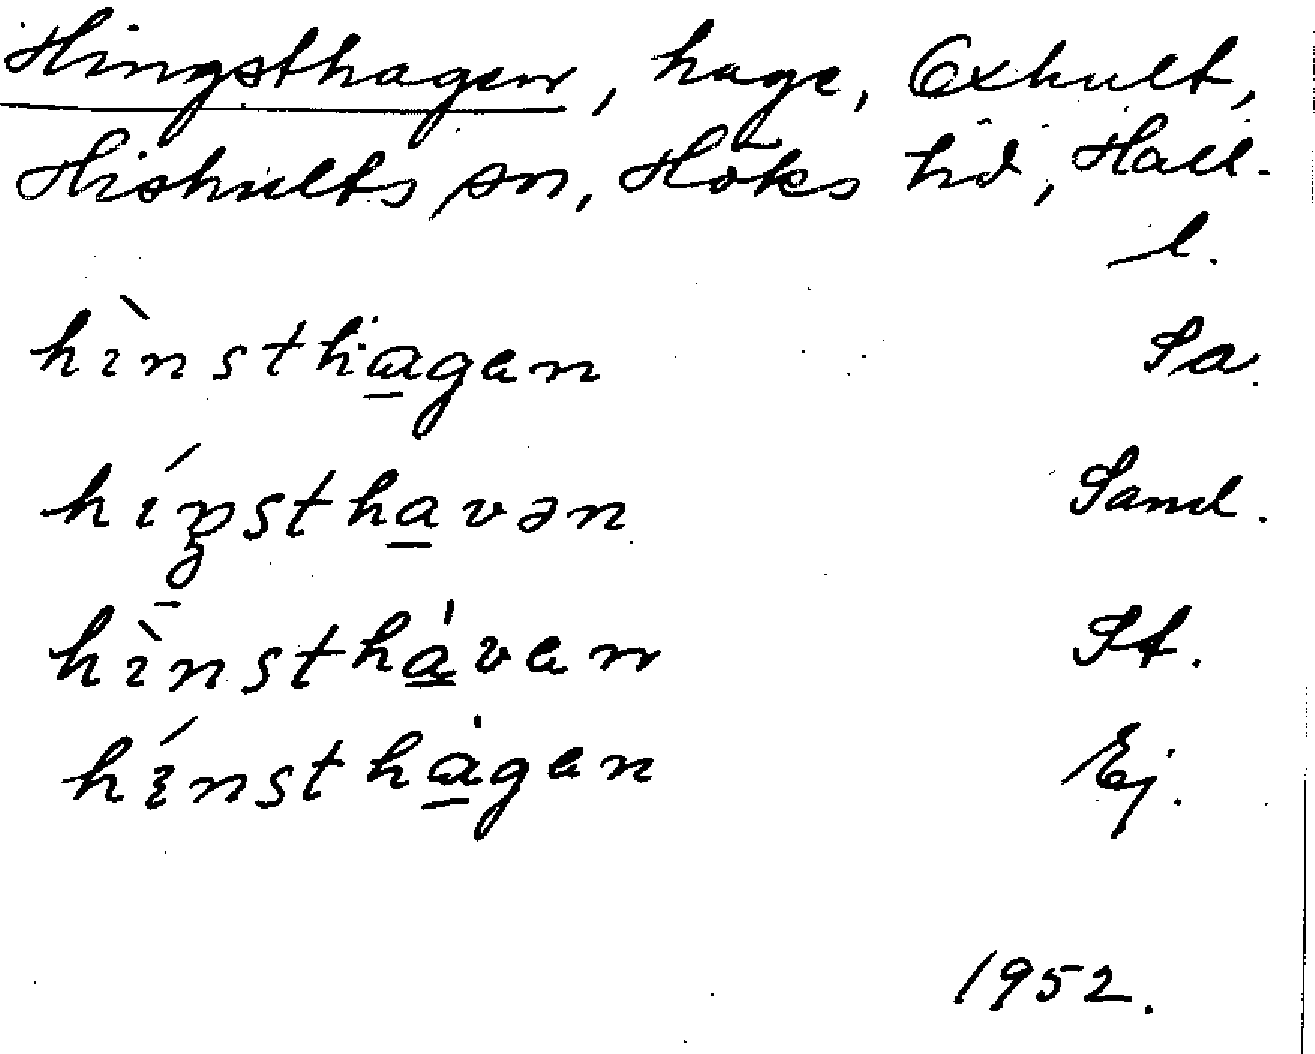 Hingsthagen, hage, Oxhult,
Hishults sn, Höks hd, Hall.
l.
hìnsthagen Sa.
híŋsthavən Sand.
hìnsthàvan St.
hínsthàgen Ej.
1952.